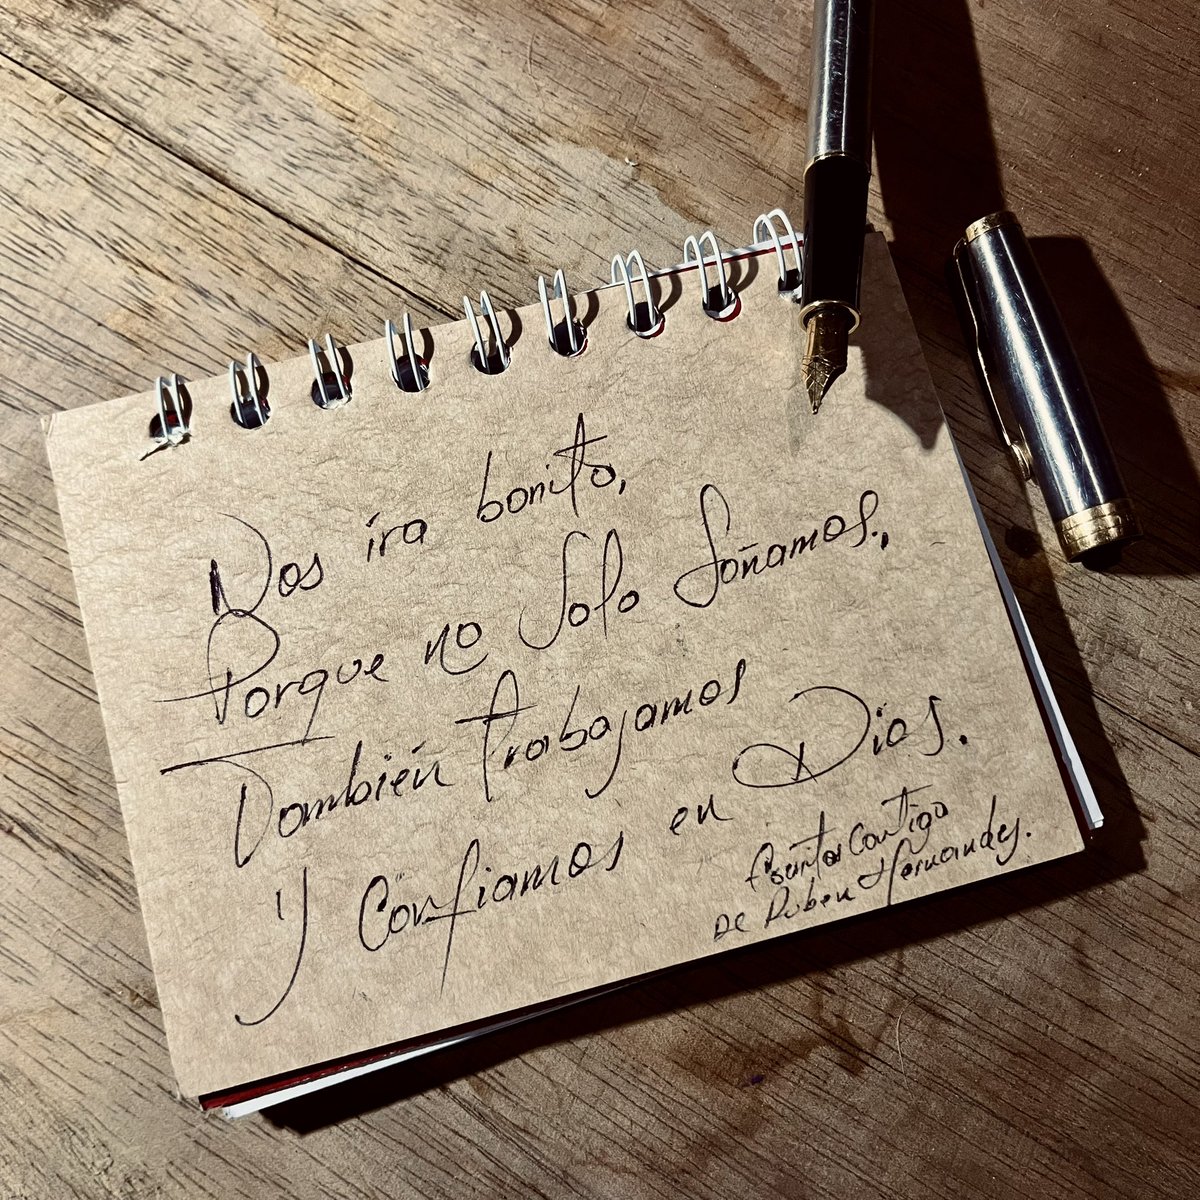 Nos ira bonito,
Porque no Solo Soñamos.,
También trabajamos
Y Confiamos en Dios.
Escritos Contigo
De Ruben Hernandez.